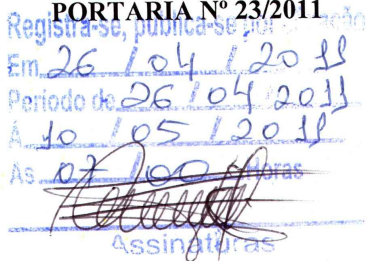 PORTARIA Nº 23/2011
Registra-se, publica-se por
Em 26 / 04 / 2011
Periodo de 26 / 04 / 2011
Á 10 / 05 / 2011
As 07 / 00 Horas
Assinaturas